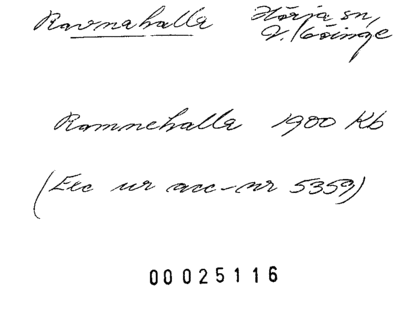 Ravnahalla Hörja sn,
V. Göinge
Ramnehalla 1900 Kb
(Exc ur acc-nr 5359)
00025116